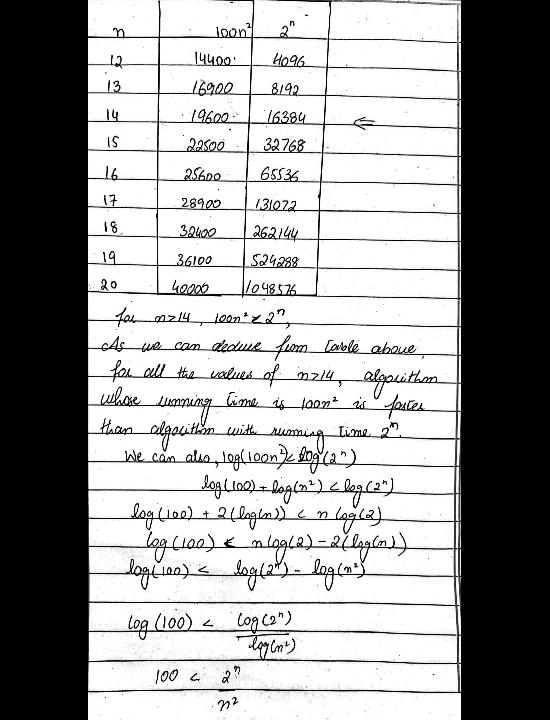 n 100n² 2ⁿ
12 14400 4096
13 16900 8192
14 19600 16384 ⇐
15 22500 32768
16 25600 65536
17 28900 131072
18 32400 262144
19 36100 524288
20 40000 1048576
for n>14, 100n² < 2ⁿ,
As we can deduce from table above,
for all the values of n>14, algorithm
whose running time is 100n² is faster
than algorithm with running time 2ⁿ.
We can also, log(100n²) < log(2ⁿ)
log(100) + log(n²) < log(2ⁿ)
log(100) + 2(log(n)) < n log(2)
log(100) < n log(2) - 2(log(n))
log(100) < log(2ⁿ) - log(n²)
log(100) < log(2ⁿ)
log(n²)
100 < 2ⁿ
n²